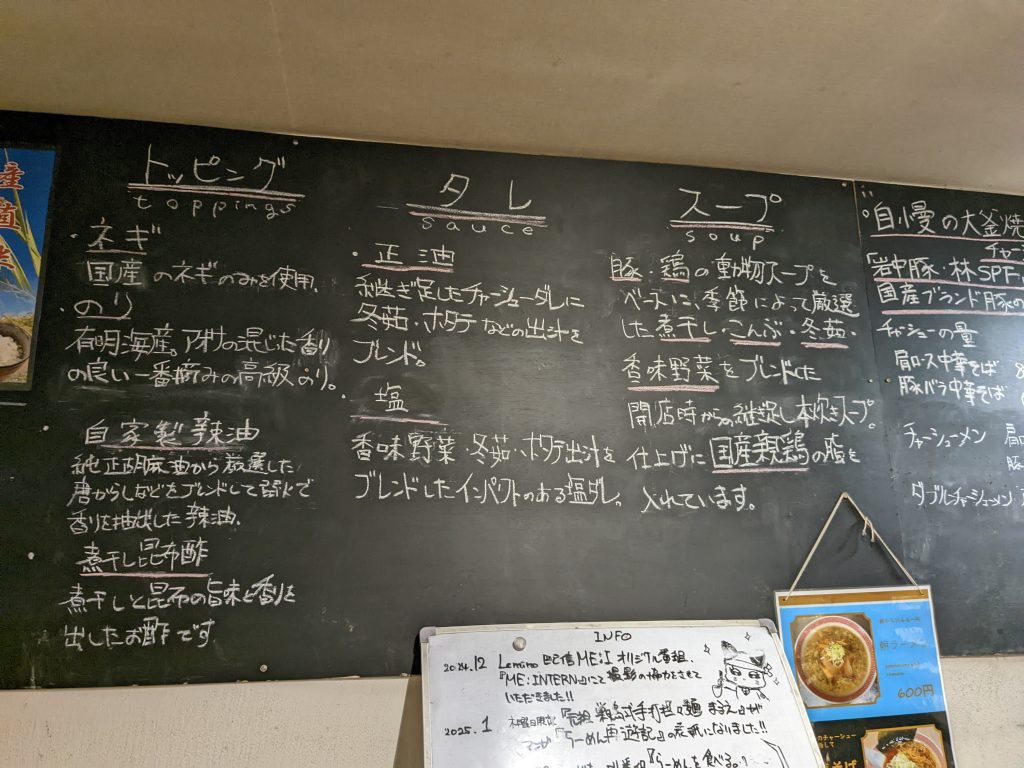 トッピング
toppings
・ネギ
国産のネギのみを使用。
・のり
有明海産。アオサの混じった香り
の良い一番摘みの高級のり。
自家製辣油
純正胡麻油から厳選した
唐からしなどをブレンドして弱火で
香りを抽出した辣油。
煮干し昆布酢
煮干しと昆布の旨味と香りを
出したお酢です
タレ
sauce
・正油
継ぎ足したチャーシューダレに
冬茹・ホタテなどの出汁を
ブレンド。
・塩
香味野菜・冬茹・ホタテ出汁を
ブレンドしたインパクトのある塩ダレ。
スープ
soup
豚・鶏の動物スープを
ベースに、季節によって厳選
した煮干し・こんぶ・冬茹・
香味野菜をブレンドした
開店時からの継ぎ足し本炊きスープ。
仕上げに国産親鶏の脂を
入れています。
自慢の大釜焼
チャー
岩中豚・林SPF
国産ブランド豚の
チャーシューの量
肩ロース中華そば
豚バラ中華そば
チャーシューメン 肩
豚
ダブルチャーシューメン
産
INFO
2024.12 Lemino配信 ME:I オリジナル番組、
『ME:INTERN』にて撮影の協力をさせて
いただきました!!
2025.1 木曜日限定
マンガ『らーめん再遊記』の
『らーめんを食べる。』
600円